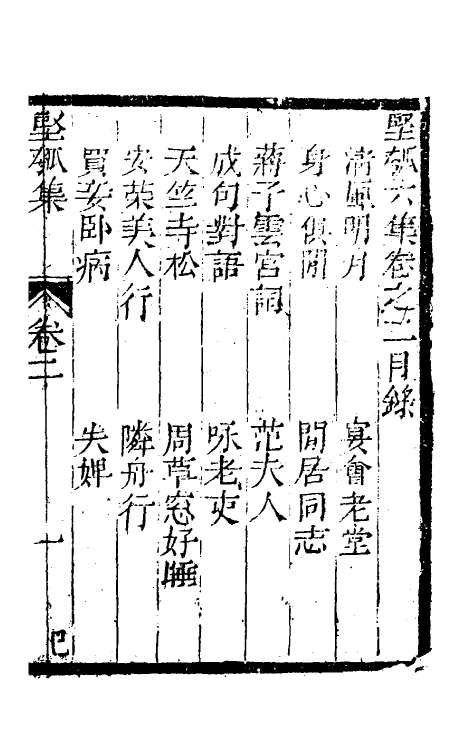 堅瓠六集卷之二目錄
清風明月　宴會老堂
身心俱閒　閒居同志
蔣子雲宮詞　范夫人
成句對語　咏老吏
天竺寺松　周草窓好睡
安榮美人行　隣舟行
買妾卧病　失婢
堅瓠集　卷二　一